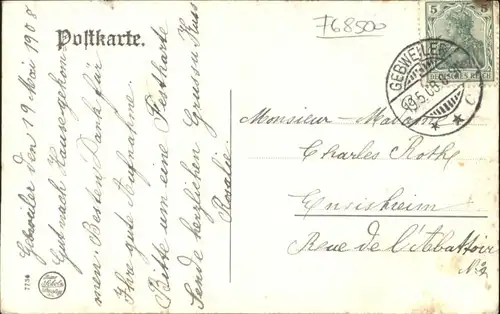 Postkarte.
F68500
5
DEUTSCHES REICH
GEBWEILER
19.5.08.
C
Gebweiler den 19 Mai 1908
Gut nach Hause gekom-
men. Besten Dank für
Ihre gute Aufnahme.
Bitte um eine Festkarte
Sende herzlichen Gruss u Kuss
Rosalie
Monsieur-Madame
Charles Roth
Ensisheim
Rue de l'Abattoir
No 2
7736